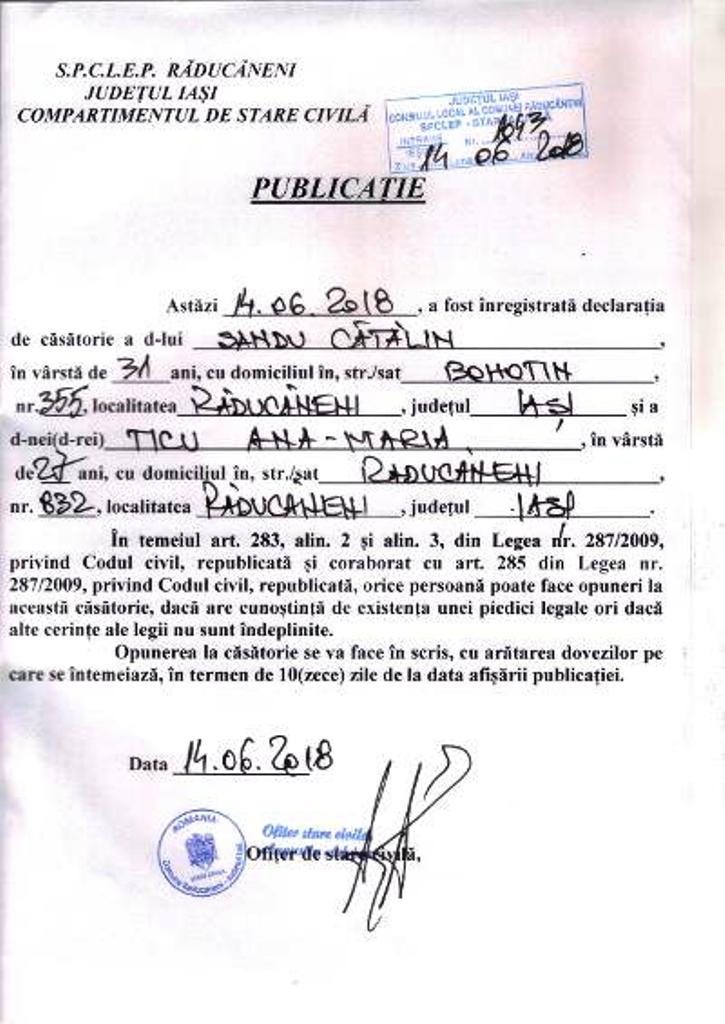 S.P.C.L.E.P. RĂDUCĂNENI
JUDEȚUL IAȘI
COMPARTIMENTUL DE STARE CIVILĂ
JUDEȚUL IAȘI
CONSILIUL LOCAL AL COMUNEI RĂDUCĂNENI
SPCLEP - STARE CIVILĂ
INTRARE Nr. 1093
14 06 2018
PUBLICAȚIE
Astăzi 14.06.2018, a fost înregistrată declarația
de căsătorie a d-lui SANDU CĂTĂLIN,
în vârstă de 31 ani, cu domiciliul în, str./sat BOHOTIN,
nr. 355, localitatea RĂDUCĂNENI, județul IAȘI și a
d-nei(d-rei) TICU ANA-MARIA, în vârstă
de 27 ani, cu domiciliul în, str./sat RĂDUCANENI,
nr. 832, localitatea RĂDUCANENI, județul IAȘI.
În temeiul art. 283, alin. 2 și alin. 3, din Legea nr. 287/2009,
privind Codul civil, republicată și coraborat cu art. 285 din Legea nr.
287/2009, privind Codul civil, republicată, orice persoană poate face opuneri la
această căsătorie, dacă are cunoștință de existența unei piedici legale ori dacă
alte cerințe ale legii nu sunt îndeplinite.
Opunerea la căsătorie se va face în scris, cu arătarea dovezilor pe
care se întemeiază, în termen de 10(zece) zile de la data afișării publicației.
Data 14.06.2018
ROMANIA
Ofițer stare civilă
Ofițer de stare civilă,